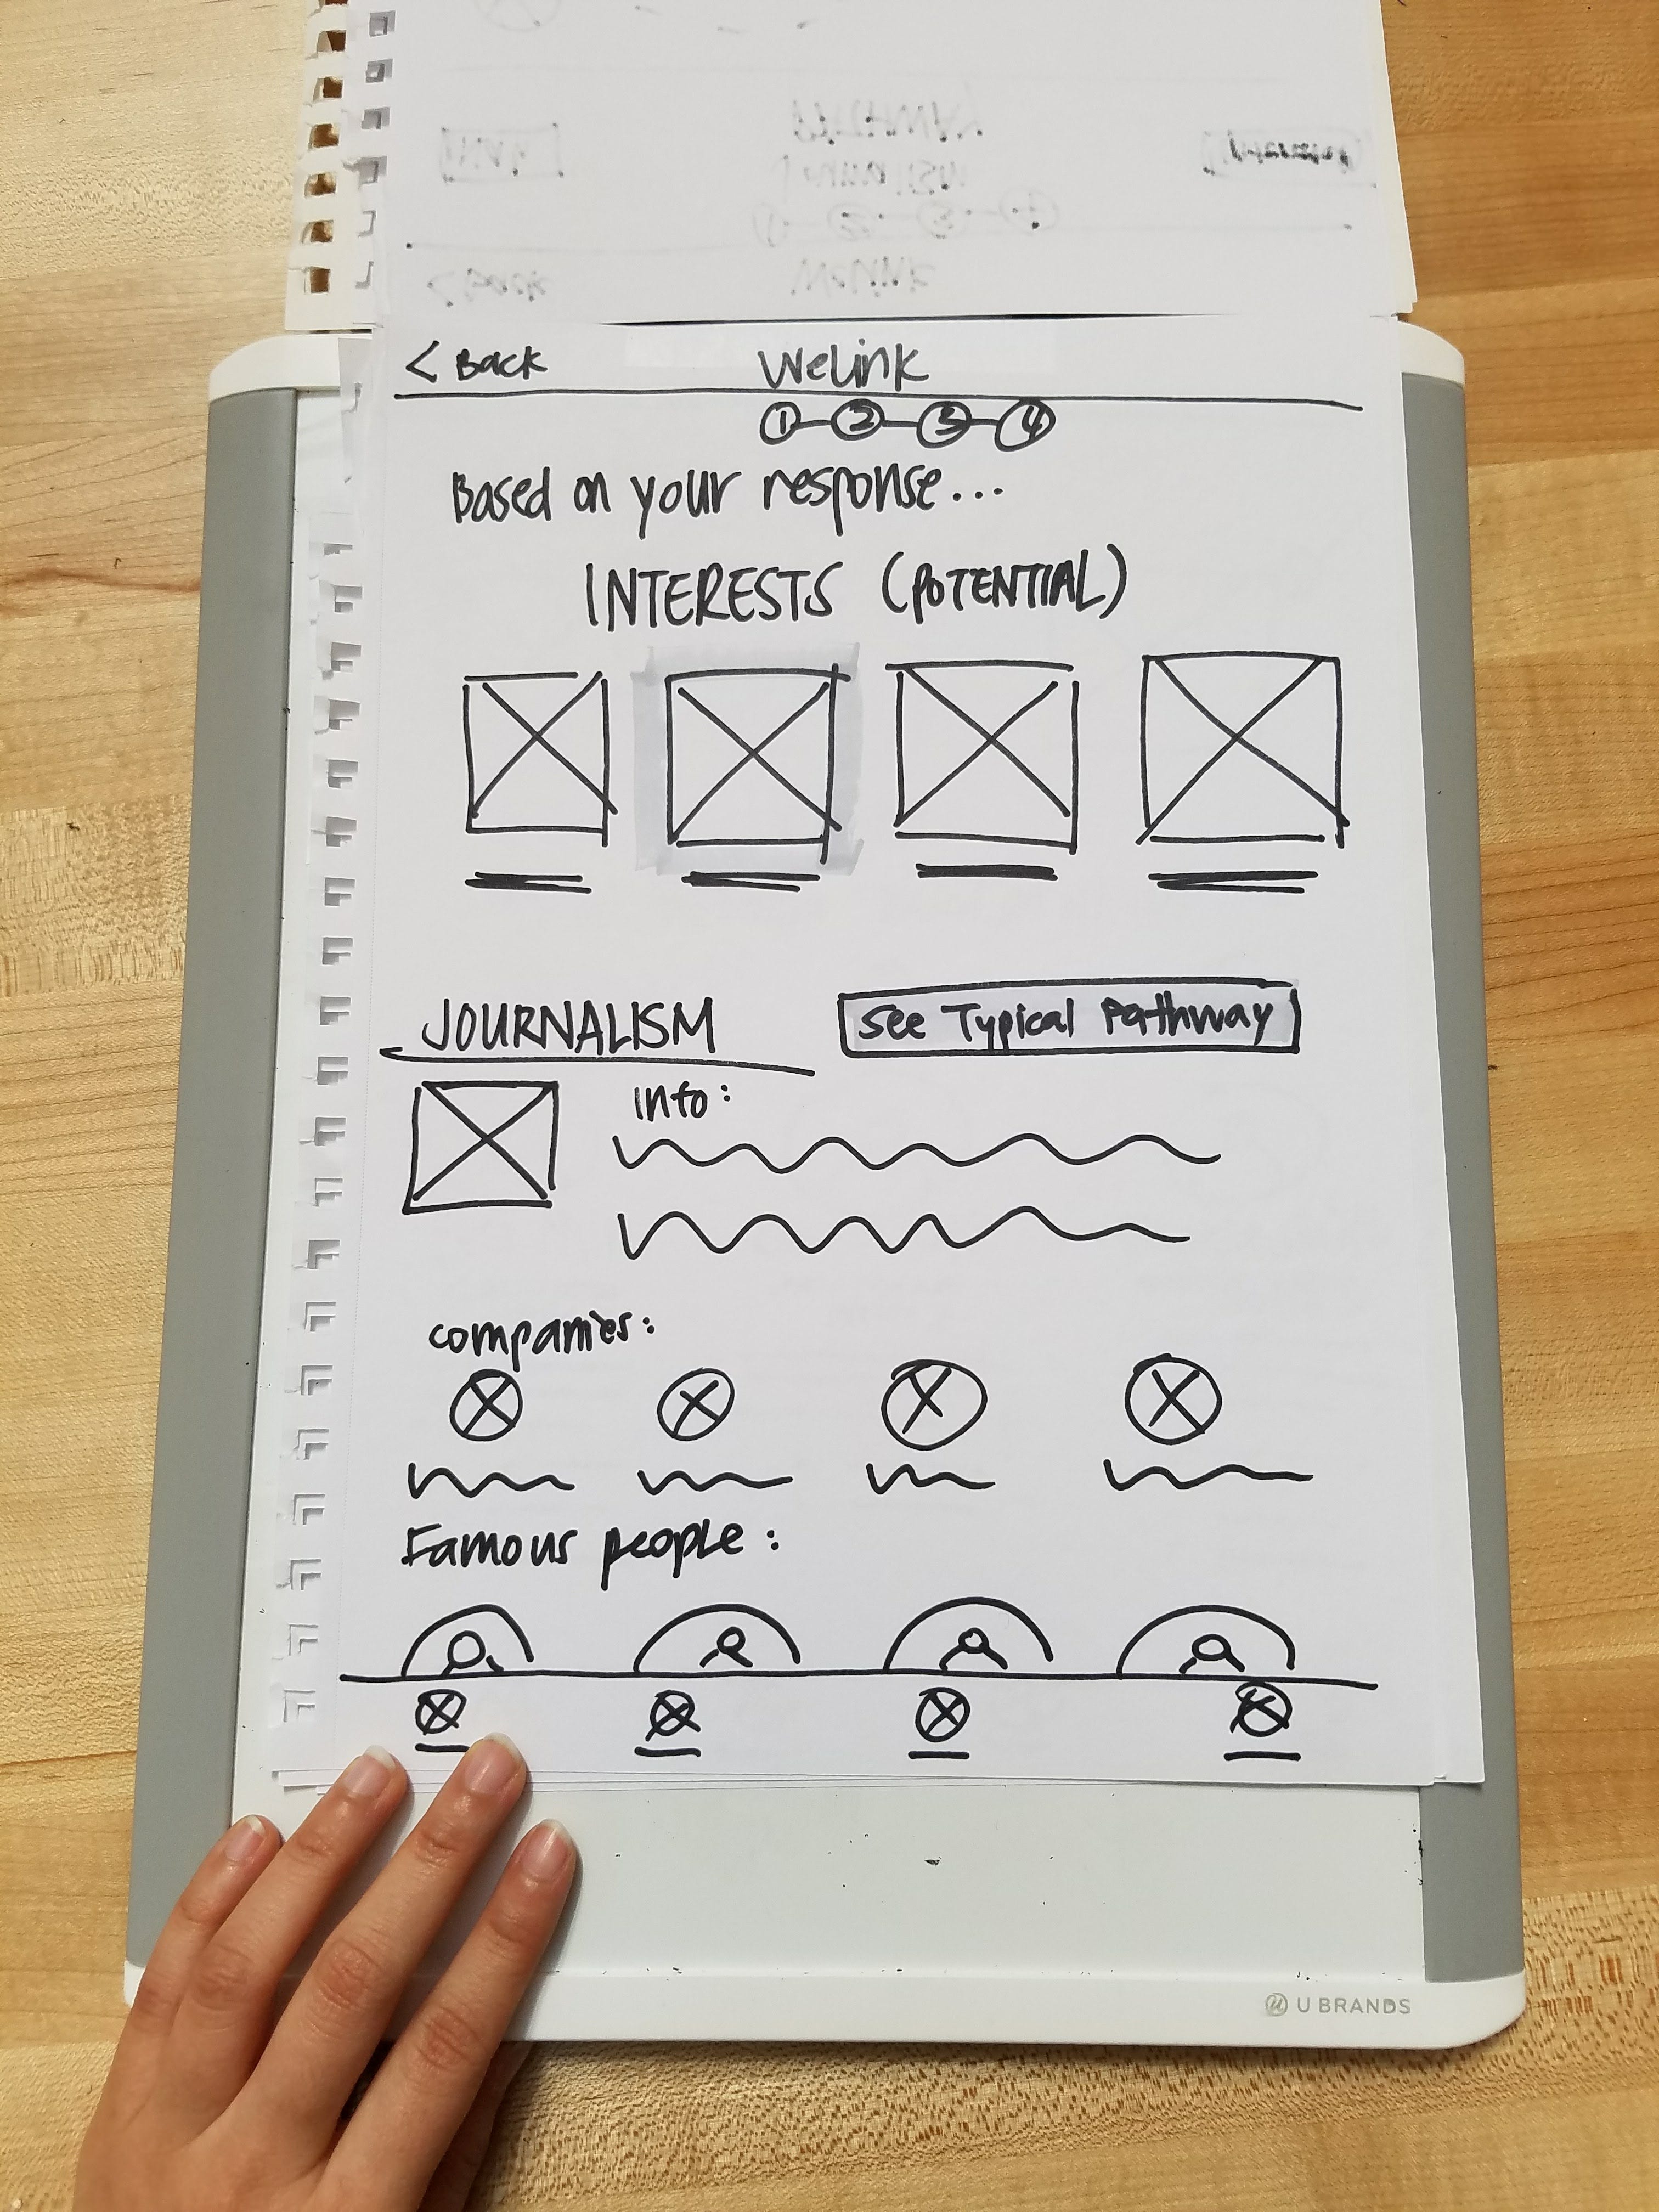 < Back
WeLink
1 2 3 4
Based on your response...
INTERESTS (POTENTIAL)
JOURNALISM
See Typical Pathway
info:
companies:
Famous people:
U BRANDS